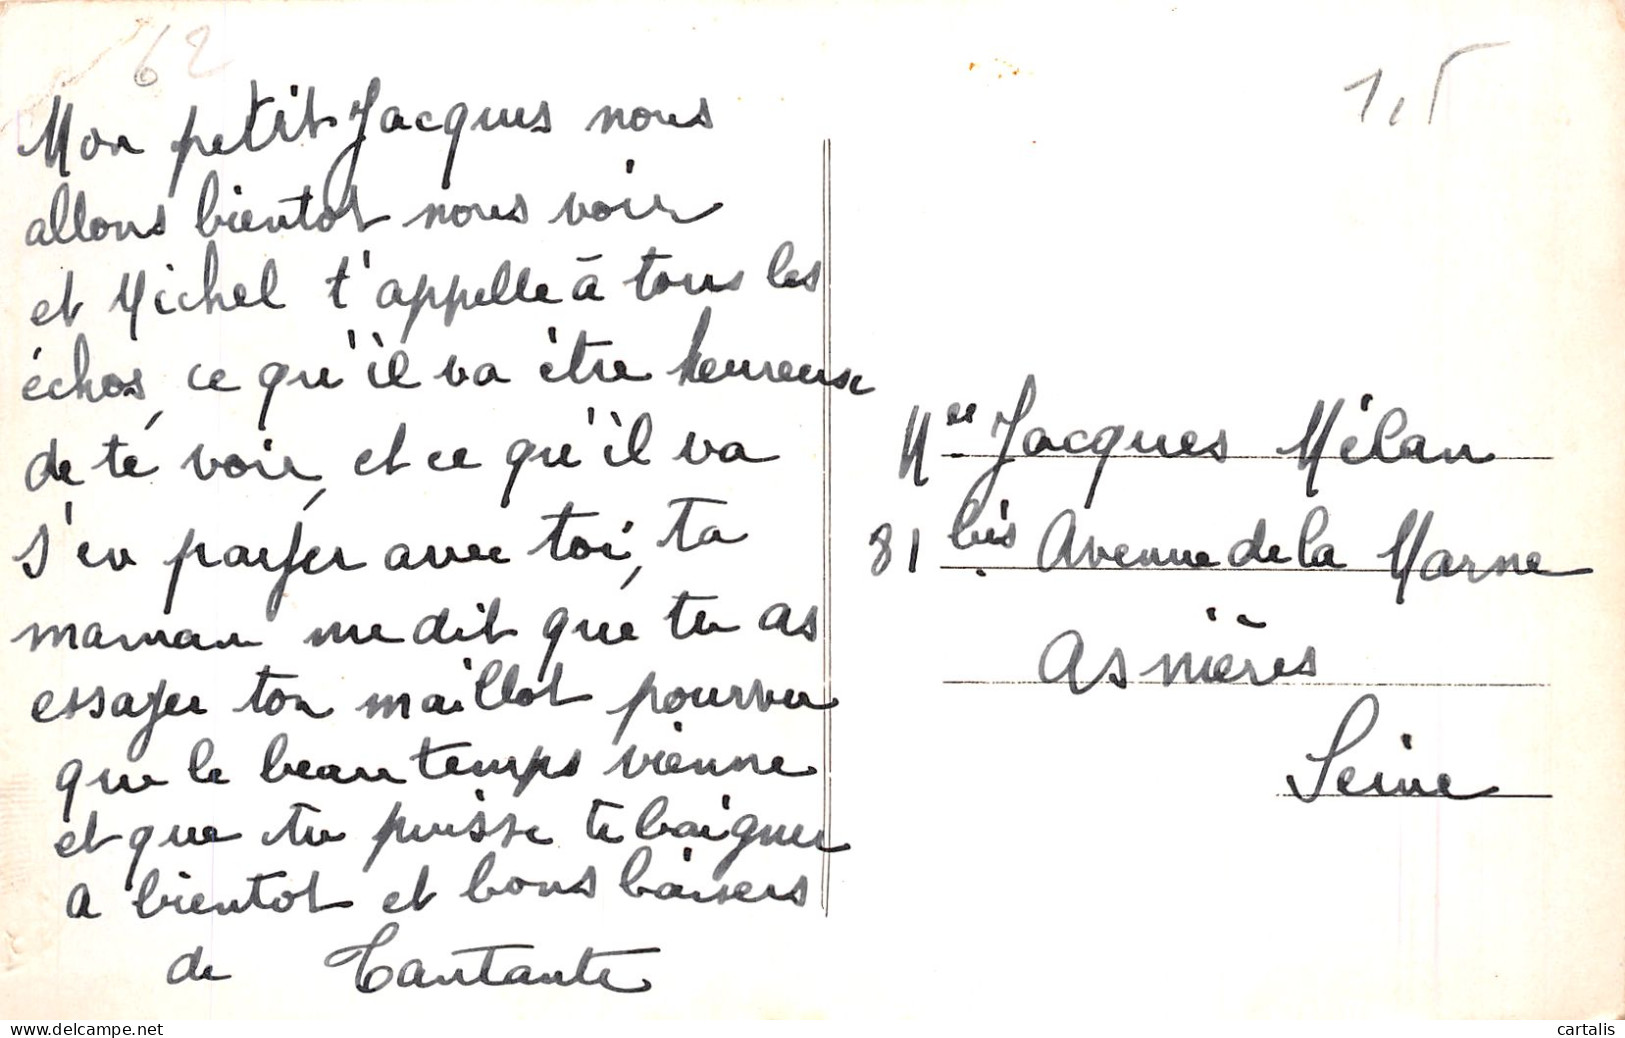 62
1,5
Mon petit Jacques nous
allons bientot nous voir
et Michel t'appelle à tous les
échos, ce qu'il va être heureuse
de té voir, et ce qu'il va
s'en payer avec toi, ta
maman me dit que tu as
essayer ton maillot pourvu
que le beau temps vienne
et que tu puisse te baigner
a bientot et bons baisers
de Tantante
Mr Jacques Mélan
81 bis Avenue de la Marne
Asnières
Seine
www.delcampe.net
cartalis